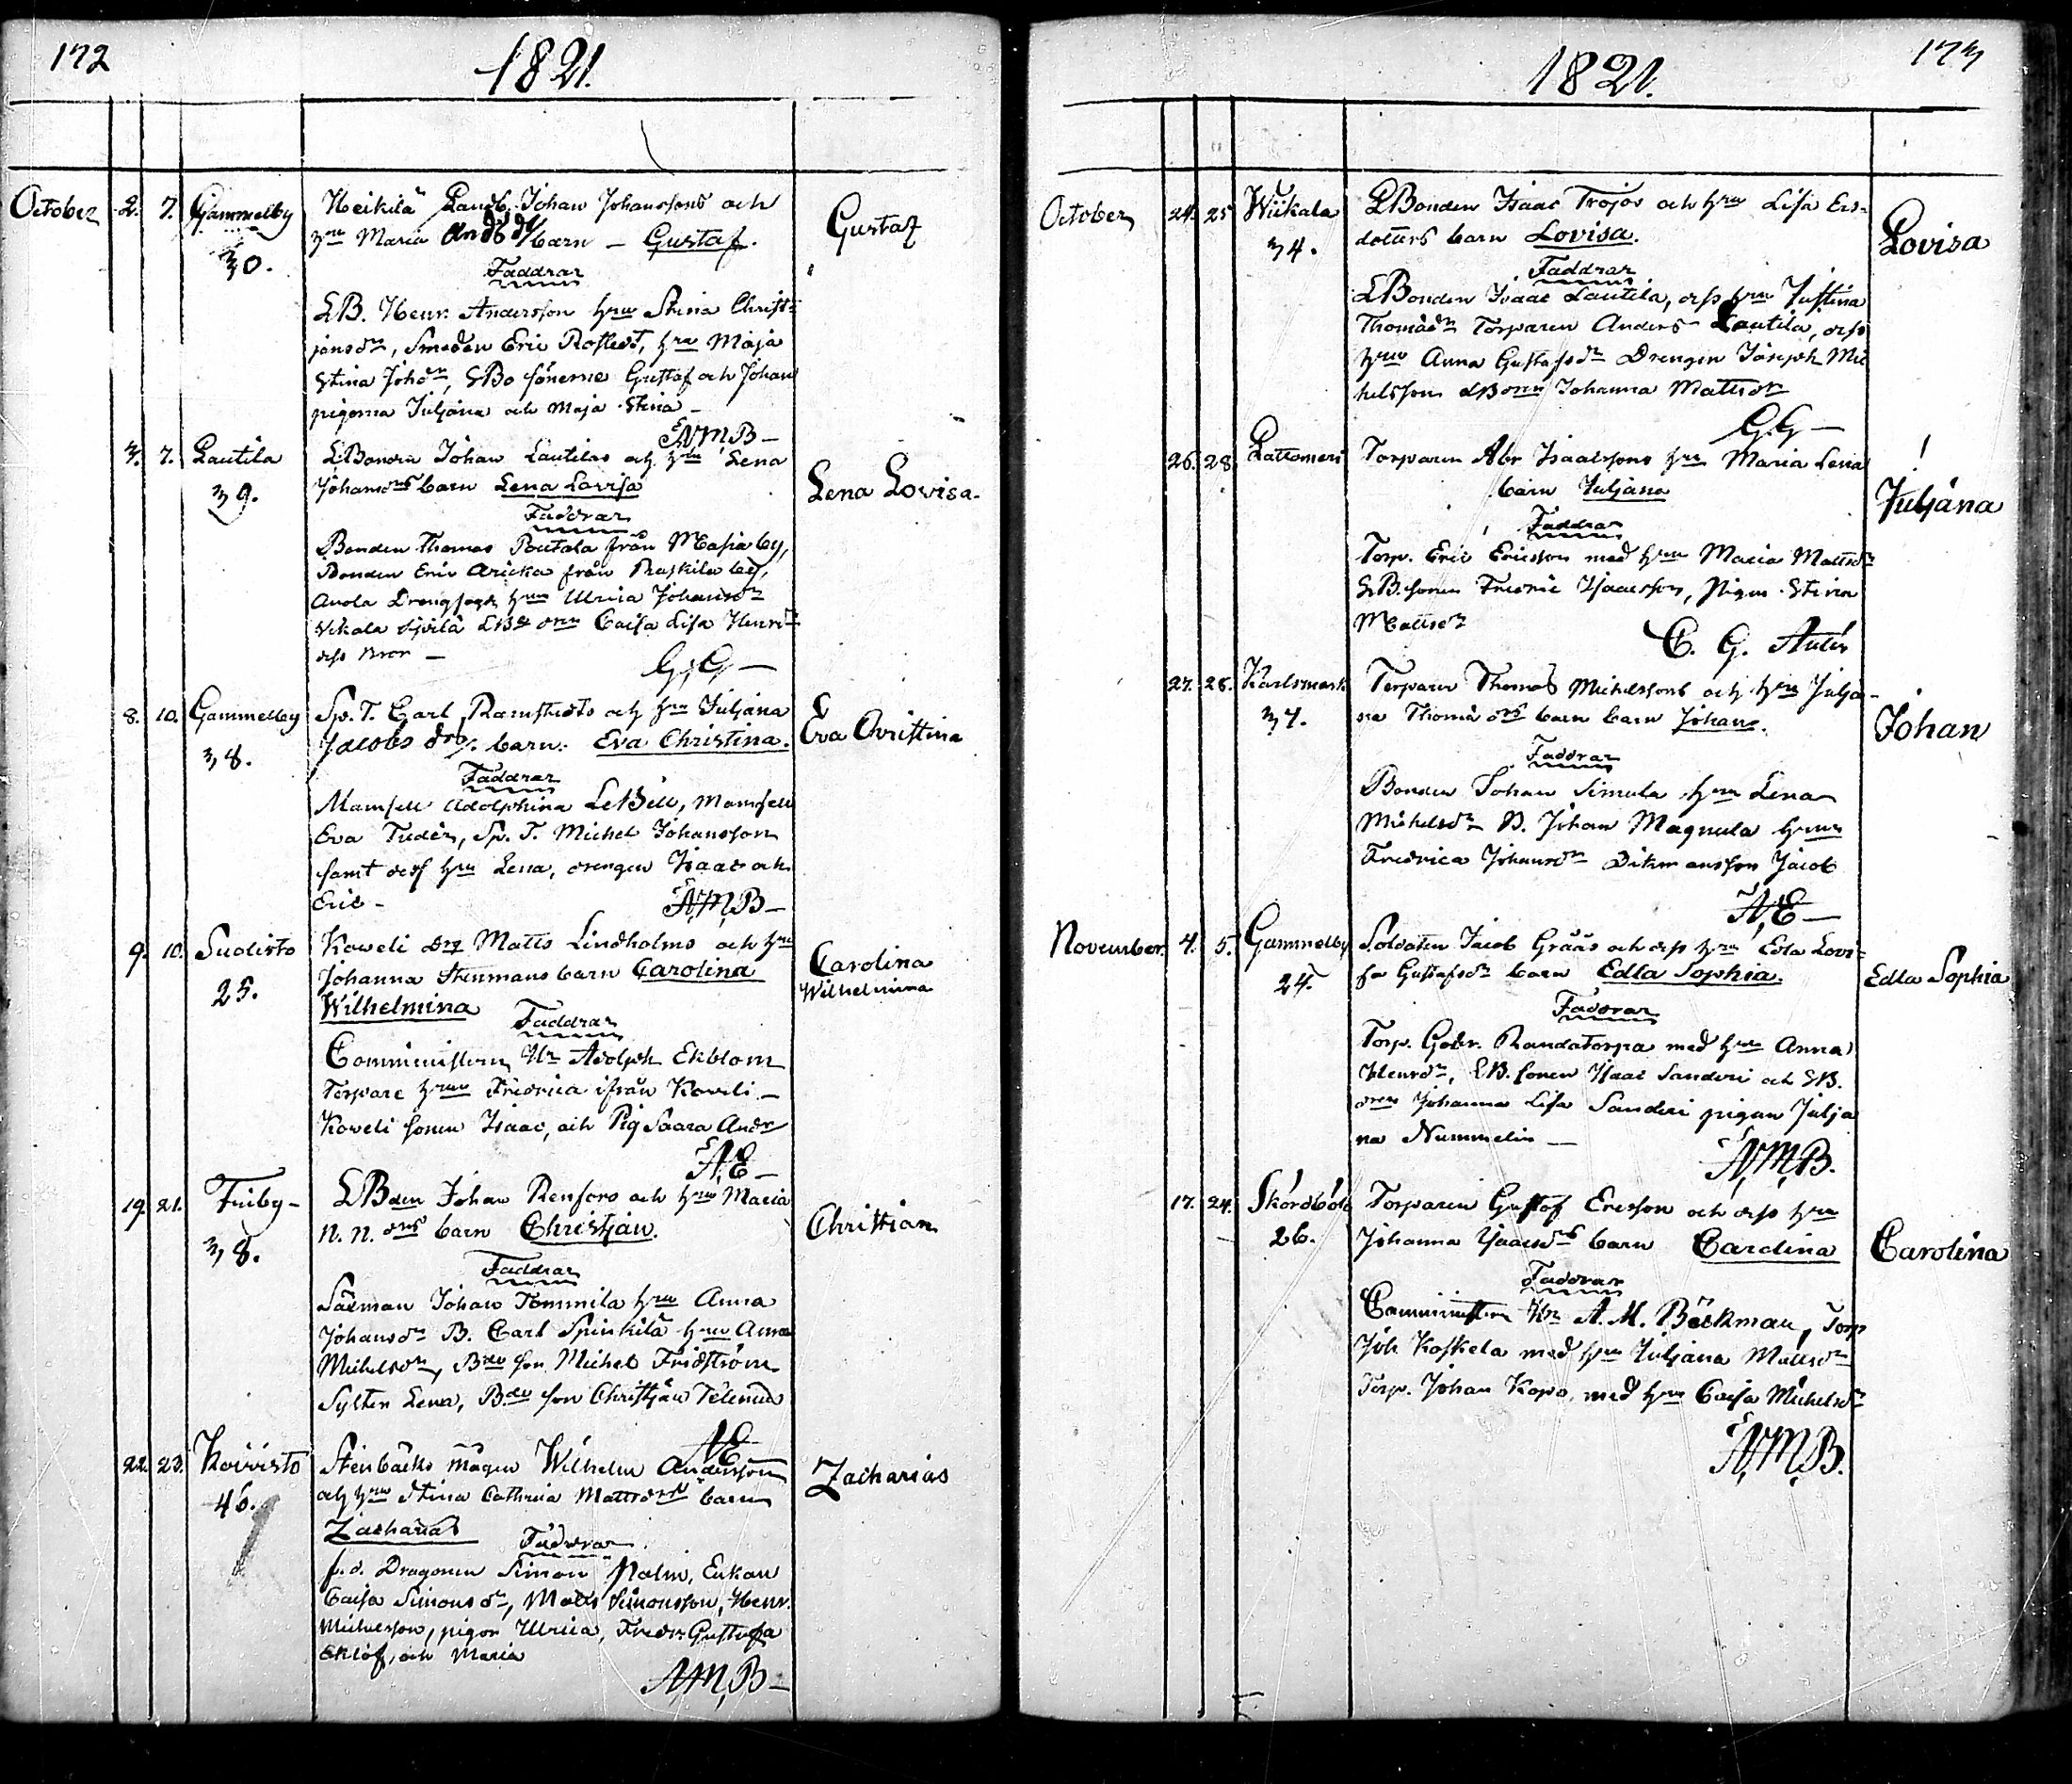 172
1821.
October 2. 7. Gammelby Heikilä Landb. Johan Johanssons och Gustaf
30. hru Maria And. dr barn – Gustaf.
Faddrar
LB. Henr. Andersson hru Stina Christ-
jansdr, Smeden Eric Rostedt, hru Maja
Stina Johdr, LBo sönerne Gustaf och Johan
pigorna Juljana och Maja Stina –
AMB –
3. 7. Lautila LBonden Johan Lautilas och hru Lena Lena Lovisa.
39. Johansdrs barn Lena Lovisa
Faddrar
Bonden Thomas Poutala från Masia by,
Bonden Eric Aricka från Raskila by,
Anola hru Ulrica Johansdr
Caisa Lisa Henrdr
dess Bror –
G. G –
8. 10. Gammelby Sp. T. Carl Ramstedts och hru Juljana Eva Christina
38. Jacobs dr barn Eva Christina.
Faddrar
Mamsell Adolphina LeBell, Mamsell
Eva Tudér, Sp. T. Michel Johansson
samt dess hru Lena, drengen Isaac och
Eric –
AMB –
9. 10. Suolisto Kaweli drg Matts Lindholms och hru Carolina
25. Johanna Stenmans barn Carolina Wilhelmina
Wilhelmina
Faddrar
Comministern Hr Adolph Ekblom
Torpare hrun Fredrica ifrån Kaveli –
Kaveli sonen Isaac, och Pig Saara Andr
AE –
19. 21. Friby – LBden Johan Renfors och hru Maria Christian
38. N. N. drs barn Christjan.
Faddrar
Johan Tommila hru Anna
Johansdr B. Carl Spinkilä hru Anna
Michelsdr, Bde son Michel Fridström
Lena, Bde son Christjan
AE
22. 23. Koivisto Stenbäcks mågen Wilhelm Andersson Zacharias
46. och hru Stina Cathrina Mattsdrs barn
Zacharias
Faddrar
f. d. Dragonen Simon Malm, Enkan
Caisa Simonsdr, Matts Simonsson, Henr.
Michelsson, pigor Ulrica, Fredr. Gustafa
Eklöf, och Maria
AMB –
1821.
173
October 24. 25. Wiikala LBonden Isaac Trojos och hru Lisa Ers- Lovisa
34. dotters barn Lovisa.
Faddrar
LBonden Isaac Lautila, dess hru Justina
Thomasdr Torparen Anders Lautila, dess
hru Anna Gustafsdr Drengen Joseph Mic
helsson LBdrn Johanna Mattsdr
G. G –
26. 28. Lattomeri Torparen Abr Isaacssons hru Maria Lena !
barn Juljana Juljána
Faddrar
Torp. Eric Ericsson med hru Maria Mattsdr
LB. sonen Fredric Isaacsson, Pigan Stina
Mattsdr
C. G. Autén
27. 28. Karlsmark Torparen Thomas Michelssons och hru Julja- Johan
37. na Thomædrs barn barn Johan.
Faddrar
Bonden Johan Simula hru Lena
Michelsdr B. Johan Magnula hru
Fredrica Johansdr Jacob
AE –
November 4. 5. Gammelby Soldaten Jacob Gråås och dess hru Edla Lovi- Edla Sophia
24. sa Gustafsdr barn Edla Sophia.
Faddrar
Torp. Gabr. Randatorpa med hru Anna
Henrsdr, LB. sonen Isaac Sanderi och LB.
dren Johanna Lisa Sanderi pigan Julja
na Nummelin –
AMB.
17. 24. Skördböle Torparen Gustaf Ericsson och dess hru Carolina
26. Johanna Isaacsdrs barn Carolina
Faddrar
Comministern Hr A. M. Bäckman, Torp
Joh Koskela med hru Juljana Mattsdr
Torp. Johan Kopo med hru Caisa Michelsdr
AMB.